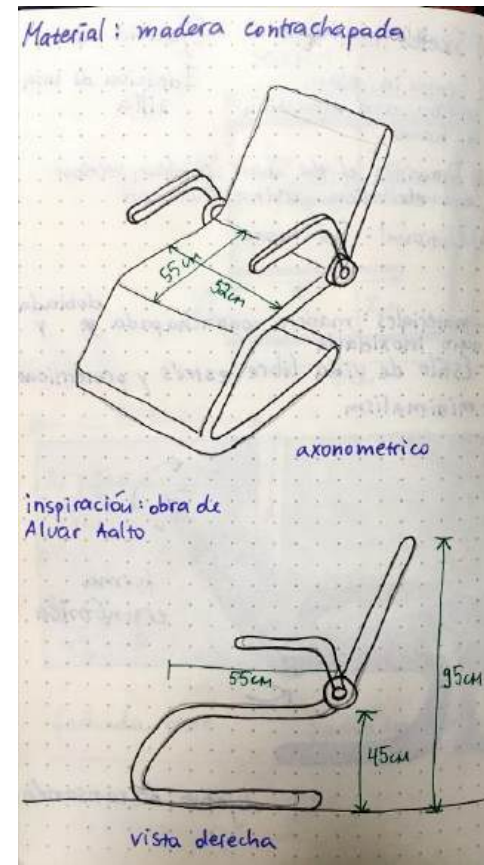 Material: madera contrachapada
55cm
52cm
axonometrico
inspiración: obra de
Alvar Aalto
55cm
95cm
45cm
vista derecha